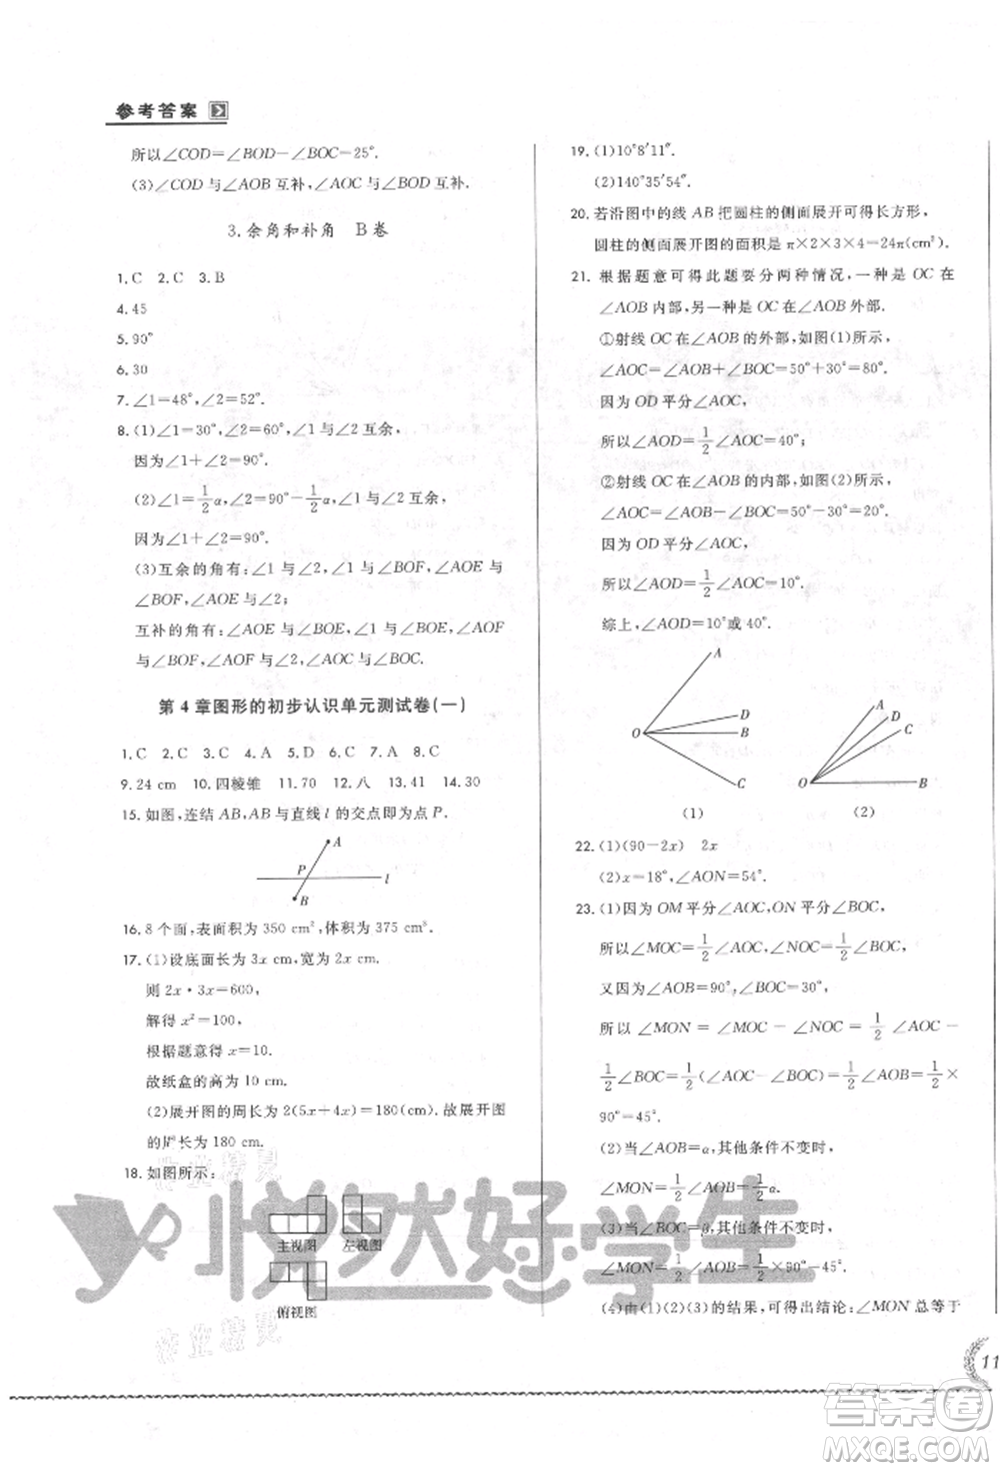 参考答案
所以∠COD=∠BOD-∠BOC=25°.
(3)∠COD与∠AOB互补,∠AOC与∠BOD互补.
3.余角和补角 B卷
1.C 2.C 3.B
4.45
5.90°
6.30
7.∠1=48°,∠2=52°.
8.(1)∠1=30°,∠2=60°,∠1与∠2互余,
因为∠1+∠2=90°.
(2)∠1=1/2α,∠2=90°-1/2α,∠1与∠2互余,
因为∠1+∠2=90°.
(3)互余的角有:∠1与∠2,∠1与∠BOF,∠AOF
与∠BOF,∠AOF与∠2;
互补的角有:∠AOE与∠BOE,∠1与∠BOE,∠AOF
与∠BOF,∠AOF与∠2,∠AOC与∠BOC.
第4章图形的初步认识单元测试卷(一)
1.C 2.C 3.C 4.A 5.D 6.C 7.A 8.C
9.24 cm 10.四棱锥 11.70 12.八 13.41 14.30
15.如图,连结AB,AB与直线l的交点即为点P.
A
P
l
B
16.8个面,表面积为350 cm²,体积为375 cm³.
17.(1)设底面长为3x cm,宽为2x cm,
则2x·3x=600,
解得x²=100,
根据题意得x=10.
故纸盒的高为10 cm.
(2)展开图的周长为2(5x+4x)=180(cm).故展开图
的周长为180 cm.
18.如图所示:
主视图 左视图
俯视图
19.(1)10°8′11″.
(2)140°35′54″.
20.若沿图中的线AB把圆柱的侧面展开可得长方形,
圆柱的侧面展开图的面积是π×2×3×4=24π(cm²).
21.根据题意可得此题要分两种情况,一种是OC在
∠AOB内部,另一种是OC在∠AOB外部.
①射线OC在∠AOB的外部,如图(1)所示,
∠AOC=∠AOB+∠BOC=50°+30°=80°.
因为OD平分∠AOC,
所以∠AOD=1/2∠AOC=40°;
②射线OC在∠AOB的内部,如图(2)所示,
∠AOC=∠AOB-∠BOC=50°-30°=20°.
因为OD平分∠AOC,
所以∠AOD=1/2∠AOC=10°.
综上,∠AOD=10°或40°.
A
D
O B
C
(1)
A
D
C
O B
(2)
22.(1)(90-2x) 2x
(2)x=18°,∠AON=54°.
23.(1)因为OM平分∠AOC,ON平分∠BOC,
所以∠MOC=1/2∠AOC,∠NOC=1/2∠BOC,
又因为∠AOB=90°,∠BOC=30°,
所以∠MON=∠MOC-∠NOC=1/2∠AOC-
1/2∠BOC=1/2(∠AOC-∠BOC)=1/2∠AOB=1/2×
90°=45°.
(2)当∠AOB=α,其他条件不变时,
∠MON=1/2∠AOB=1/2α.
(3)当∠BOC=β,其他条件不变时,
∠MON=1/2∠AOB=1/2×90°=45°.
(4)由(1)(2)(3)的结果,可得出结论:∠MON总等于
11
悦然好学生
作业精灵
作业精灵
答案圈
MXQE.COM